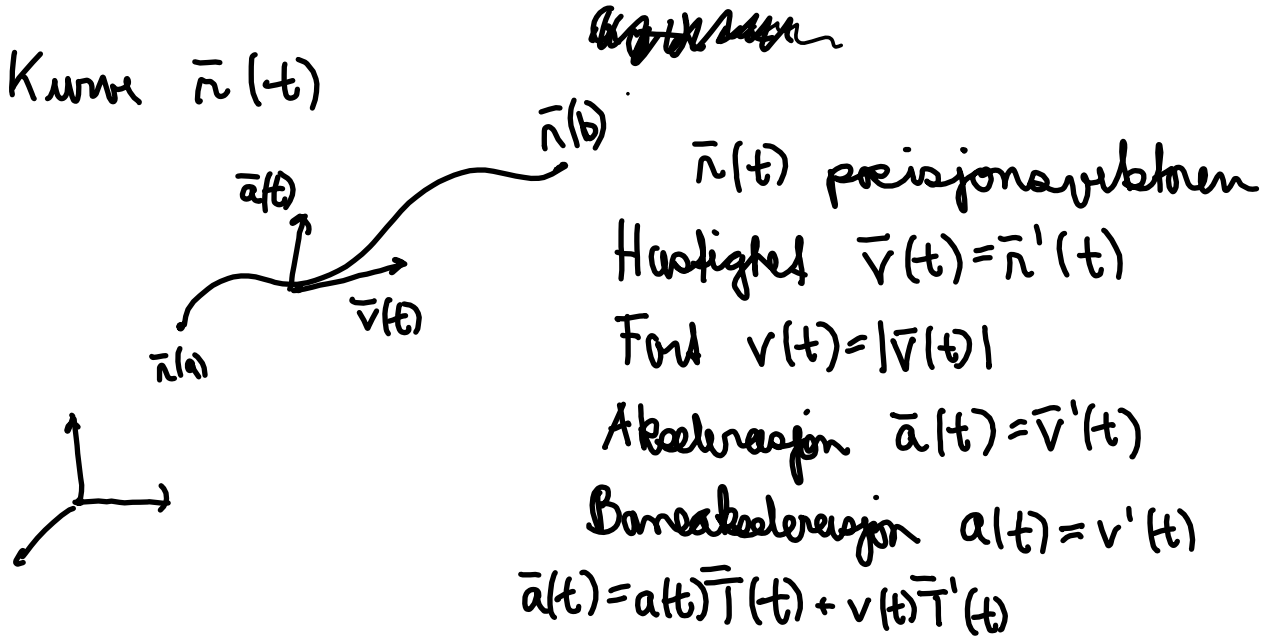 Kurve r̄(t)
r̄(b)
ā(t)
v̄(t)
r̄(a)
r̄(t) posisjonsvektoren
Hastighet v̄(t)=r̄'(t)
Fart v(t)=|v̄(t)|
Akselerasjon ā(t)=v̄'(t)
Baneakselerasjon a(t)=v'(t)
ā(t)=a(t)T̄(t)+v(t)T̄'(t)